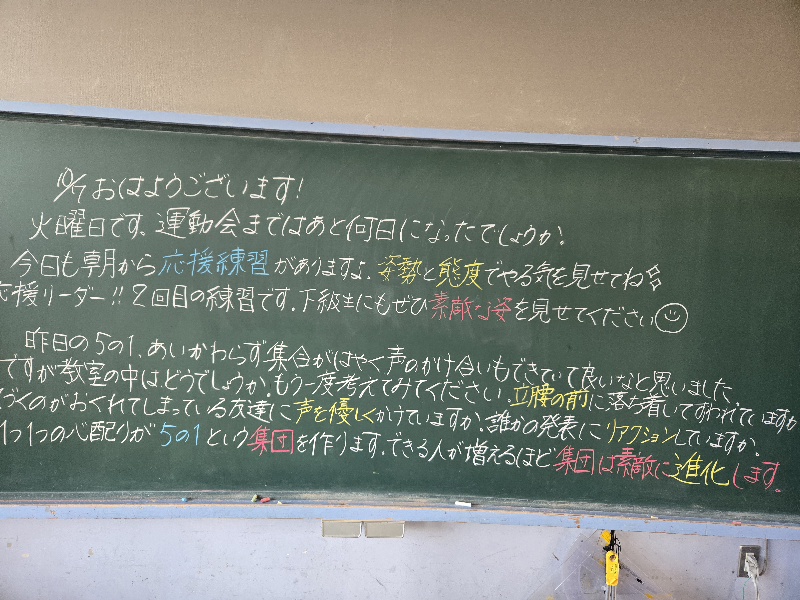 10/7 おはようございます!
火曜日です。運動会まではあと何日になったでしょうか。
今日も朝から応援練習がありますよ。姿勢と態度でやる気を見せてね
応援リーダー!!2回目の練習です。下級生にもぜひ素敵な姿を見せてください
昨日の5の1、あいかわらず集合がはやく声のかけ合いもできていて良いなと思いました。
ですが教室の中はどうでしょうか。もう一度考えてみてください。立腰の前に落ち着いてすわれていますか
くのがおくれてしまっている友達に声を優しくかけていますか。誰かの発表にリアクションしていますか。
1つ1つの心配りが5の1という集団を作ります。できる人が増えるほど集団は素敵に進化します。